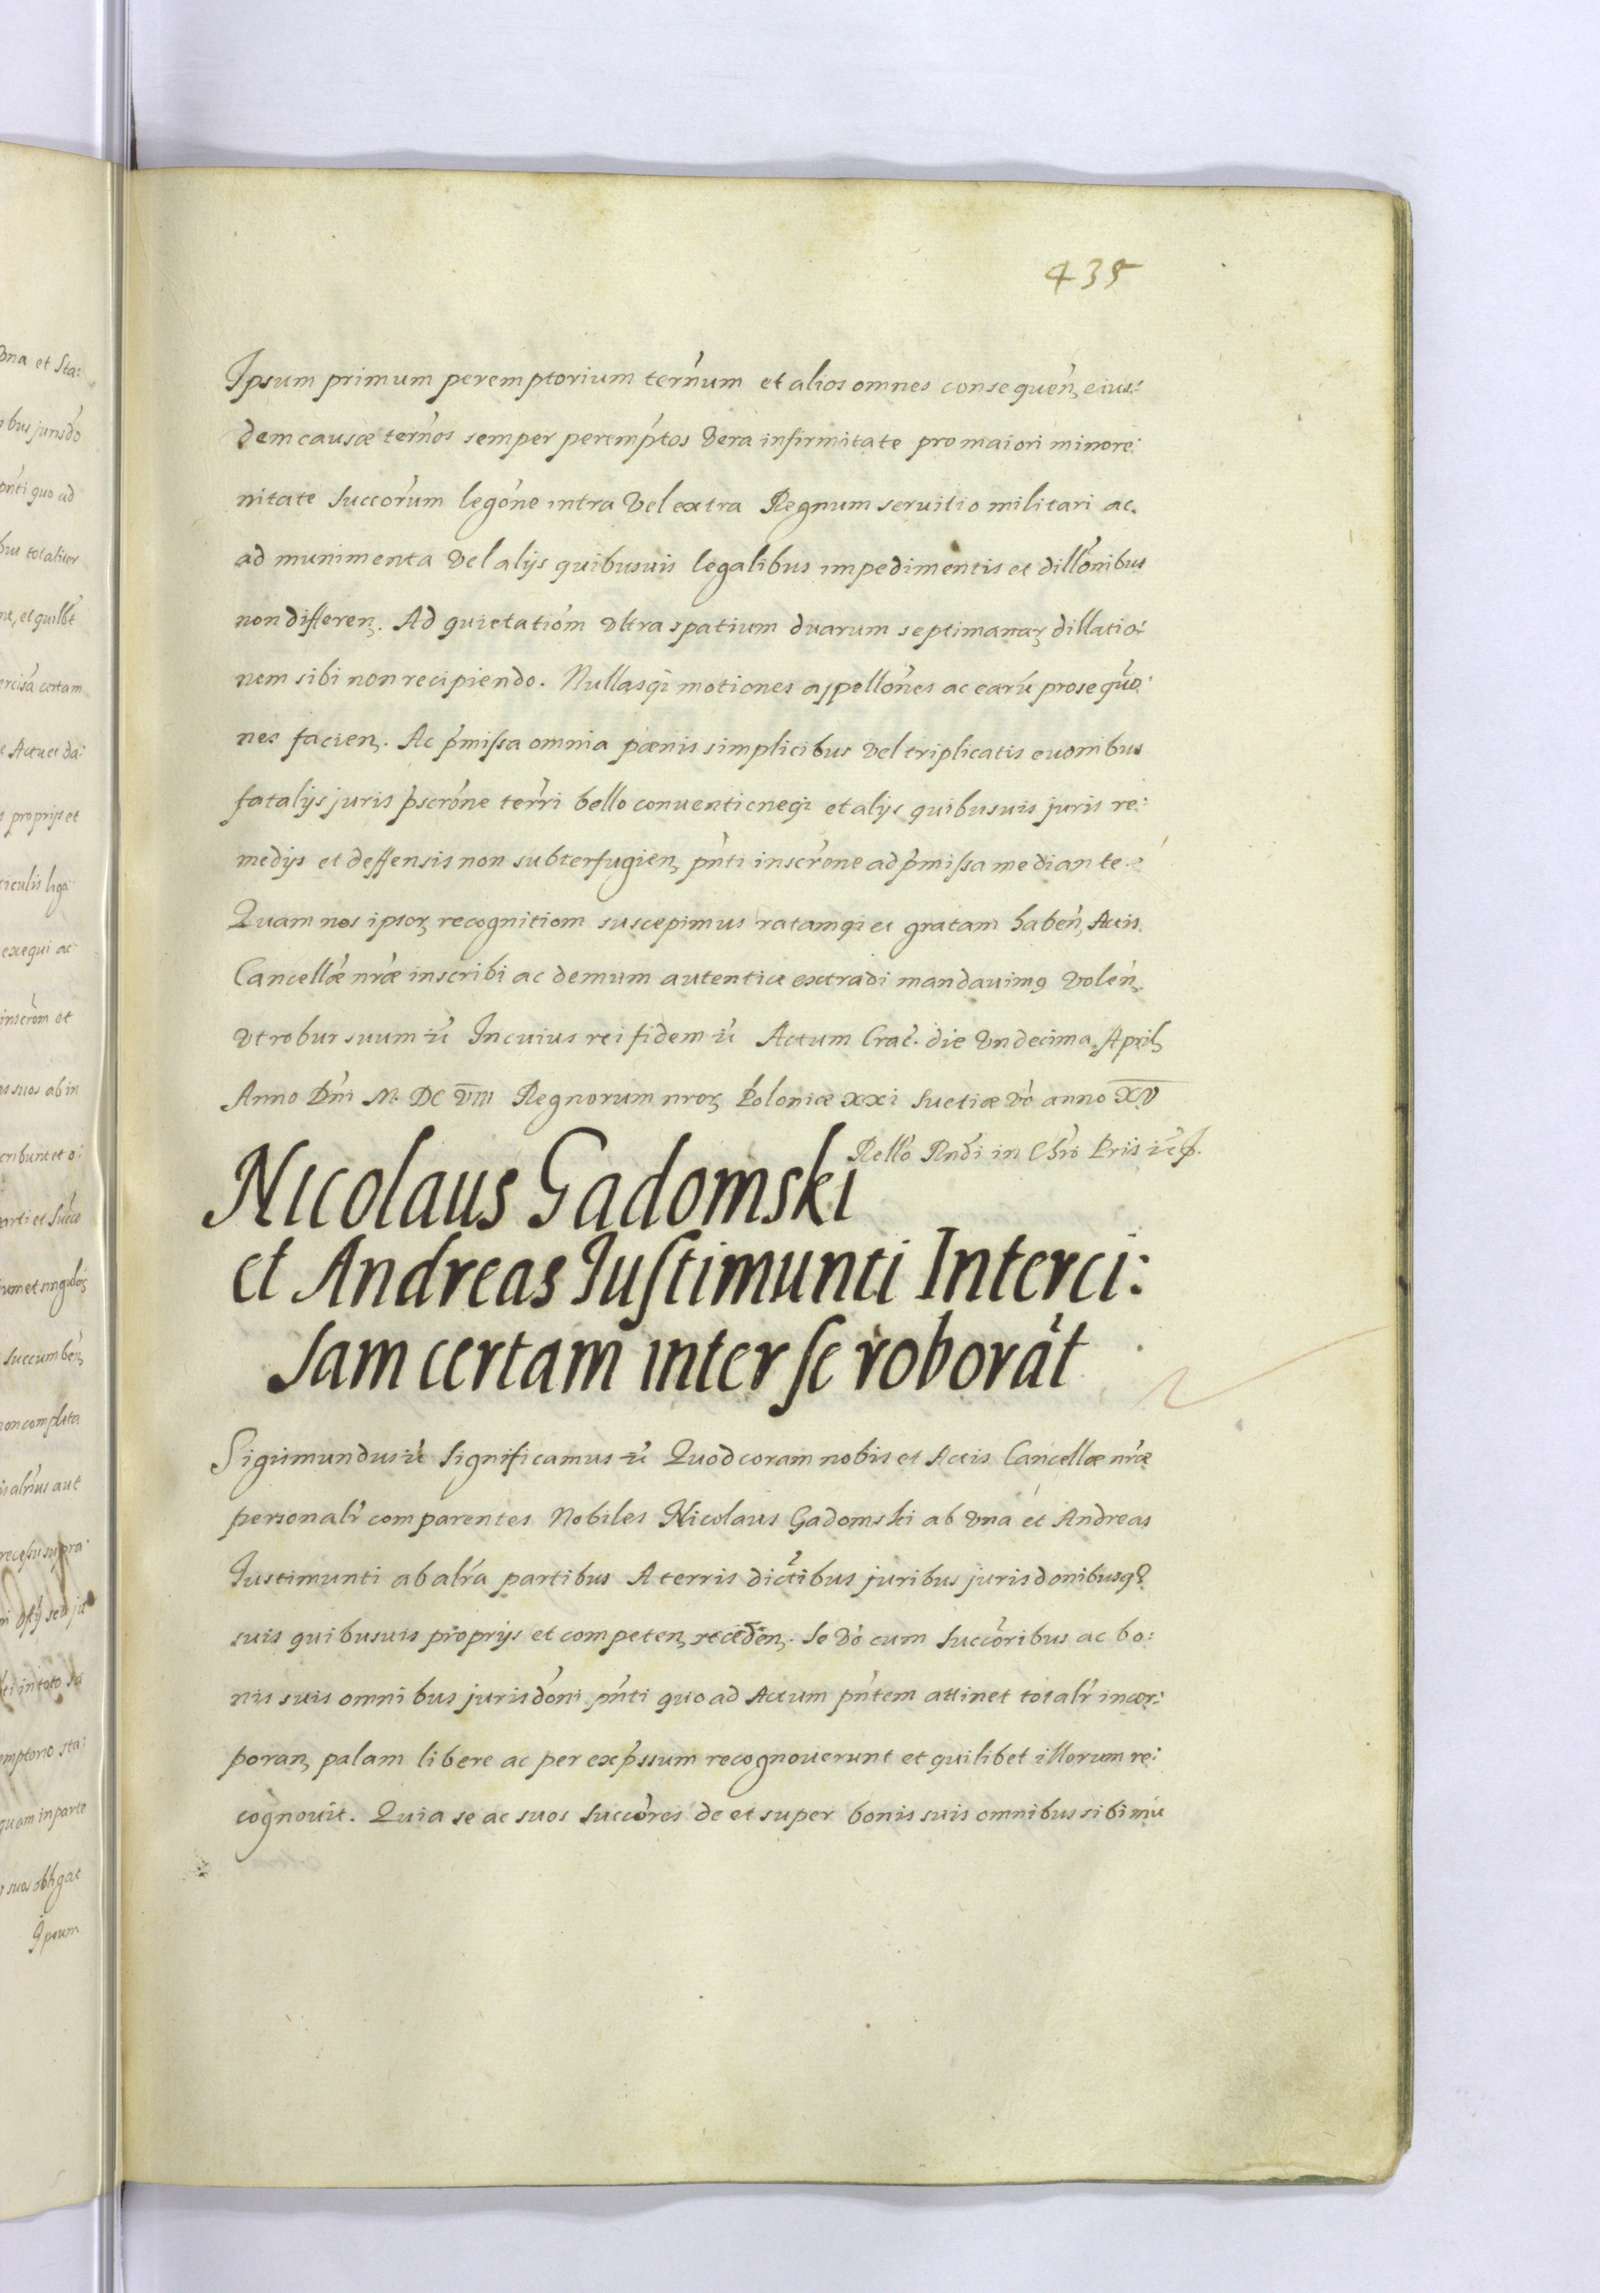 435
Ipsum primum peremptorium ternum et alios omnes consequen, eius:
dem causæ ternos semper peremptos vera infirmitate pro maiori minore:
nitate succorum legone intra vel extra Regnum servitio militari ac
ad munimenta vel alijs quibusuis legalibus impedimentis et dillonibus
non differen. Ad quietatiom vltra spatium duarum septimanar dillatio:
nem sibi non recipiendo. Nullasq; motiones appellones ac earu prosequo:
nes facien. Ac pmissa omnia pœnis simplicibus vel triplicatis euonibus
fatalijs juris pscrone terri bello conventioneq; et alijs quibusuis juris re:
medijs et deffensis non subterfugien, pnti inscrone ad pmissa mediante
Quam nos ipsor recognitiom suscepimus ratamq; et gratam haben, Actis
Cancellæ nræ inscribi ac demum autentice extradi mandauimg volen,
vt robur suum zc Incuius rei fidem zc Actum Crac. die vndecima April
Anno Dni M. DC VIII Regnorum nror Poloniæ xxi Suetiæ vo anno XV
Rello Rndi in Chro Pris zc p.
Nicolaus Gadomski
et Andreas Iustimunti Interci:
sam certam inter se roborāt
Sigismundus zc Significamus zc Quod coram nobis et Actis Cancellæ nræ
personalr comparentes Nobiles Nicolaus Gadomski ab vna et Andreas
Iustimunti ab alra partibus A terris dictibus juribus jurisdonibusq?
suis quibusuis proprijs et competen, receden,. Se vo cum succoribus ac bo:
nis suis omnibus jurisdoni pnti quo ad Actum pntem attinet totalr incor:
poran, palam libere ac per expssum recognouerunt et quilibet illorum re:
cognouit. Quia se ac suos succores de et super bonis suis omnibus sibi mu